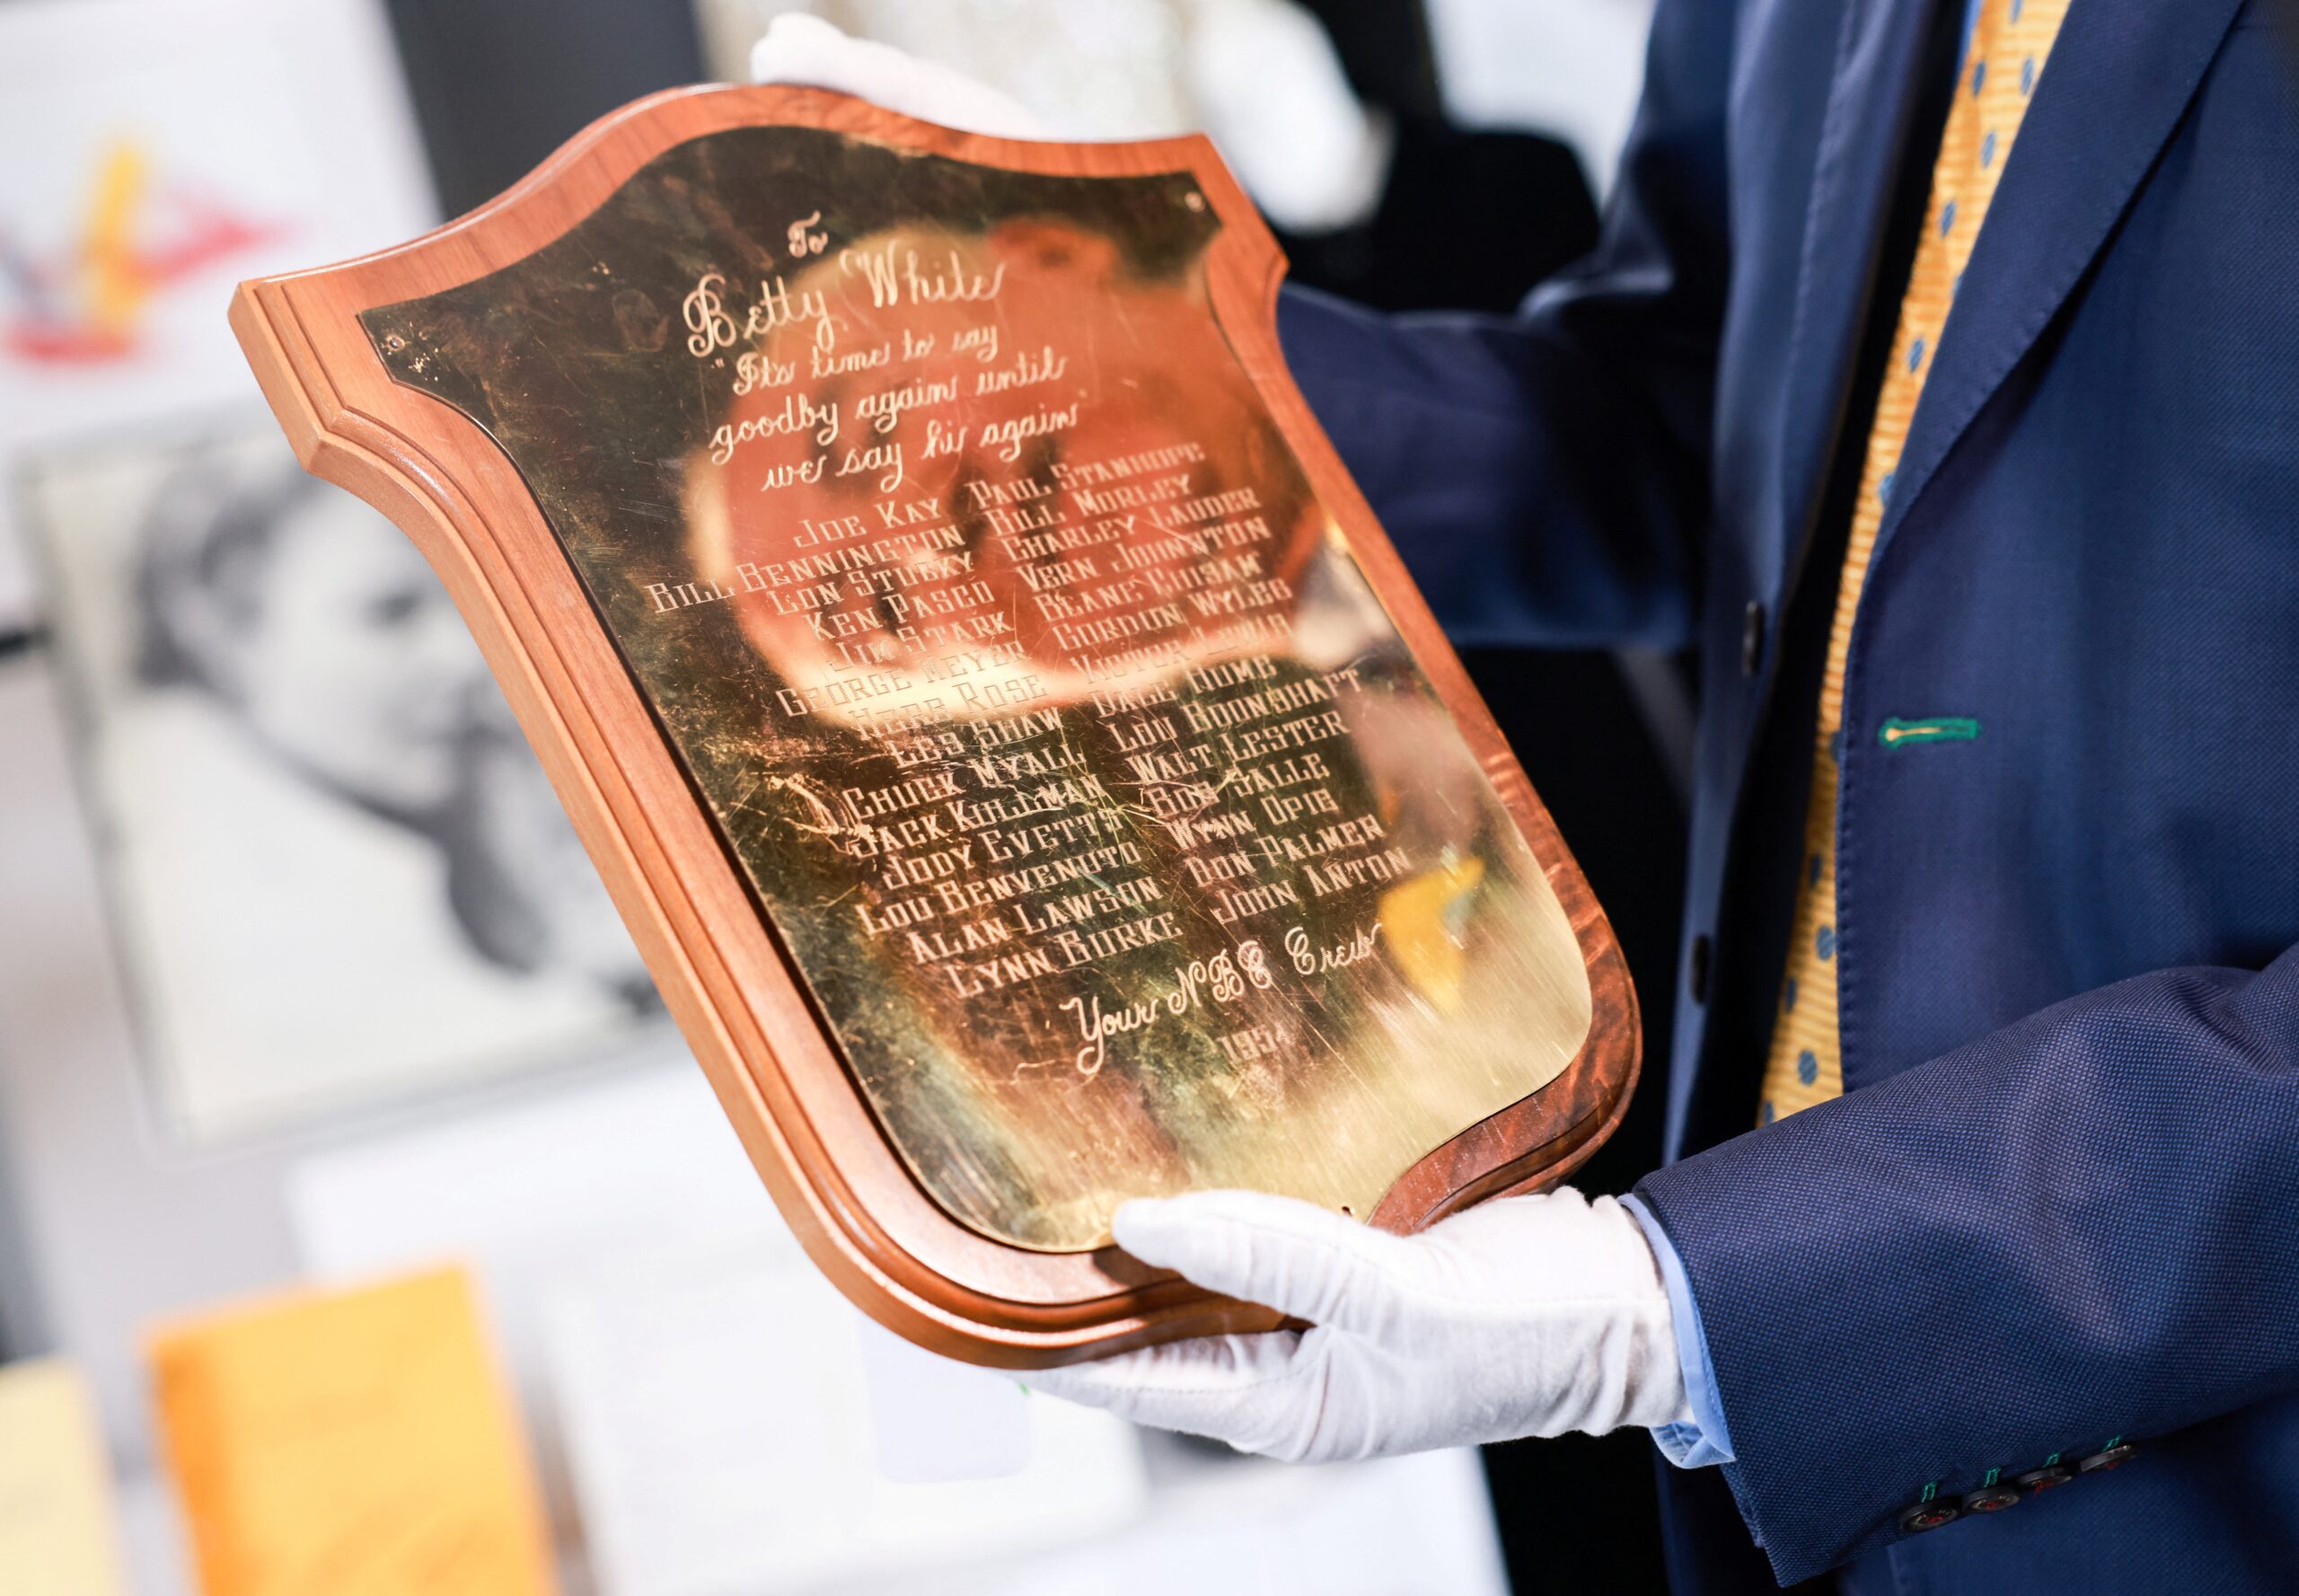 To
Betty White
"Its time to say
goodby again until
we say hi again"
JOE KAY PAUL STANHOPE
BILL BENNINGTON BILL MORLEY
LON STUCKY CHARLEY LAUDER
KEN PASCO VERN JOHNSTON
STARK CHISAM
GEORGE MEYER GORDON WYLES
HERB ROSE VICTOR
LES SHAW
CHUCK MYALL LOU
JACK KULLMAN WALT LESTER
JODY EVETTS BOB SALLE
LOU BENVENUTO WYNN OPIE
ALAN LAWSON DON PALMER
LYNN BURKE JOHN ANTON
Your NBC Crew
1954